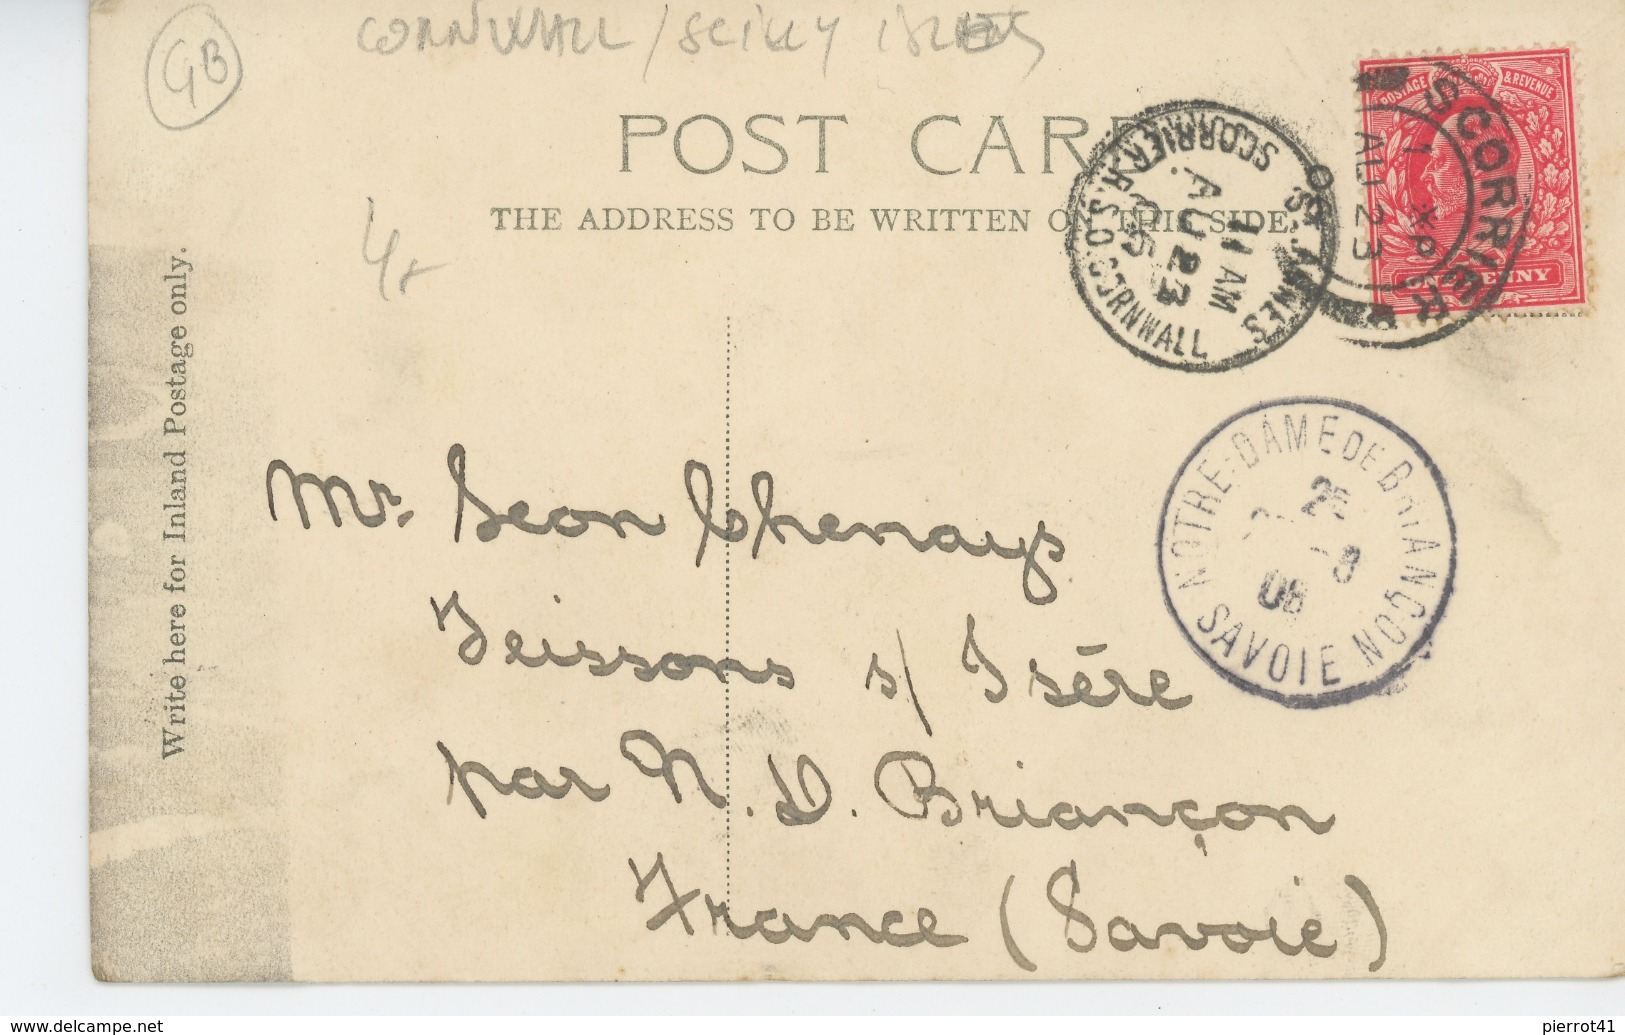 GB
CORNWALL / SCILLY ISLANDS
POST CARD
THE ADDRESS TO BE WRITTEN ON THIS SIDE.
POSTAGE & REVENUE
ONE PENNY
SCORRIER
AU 23
ST. AGNES
SCORRIER. R.S.O. CORNWALL
11 AM
AU 23
06
4
Write here for Inland Postage only.
NOTRE-DAME DE BRIANÇON
25 -8
06
SAVOIE
Mr. Leon Chenays
Feissons s/ Isére
par N. D. Briançon
France (Savoie)
www.delcampe.net
pierrot41